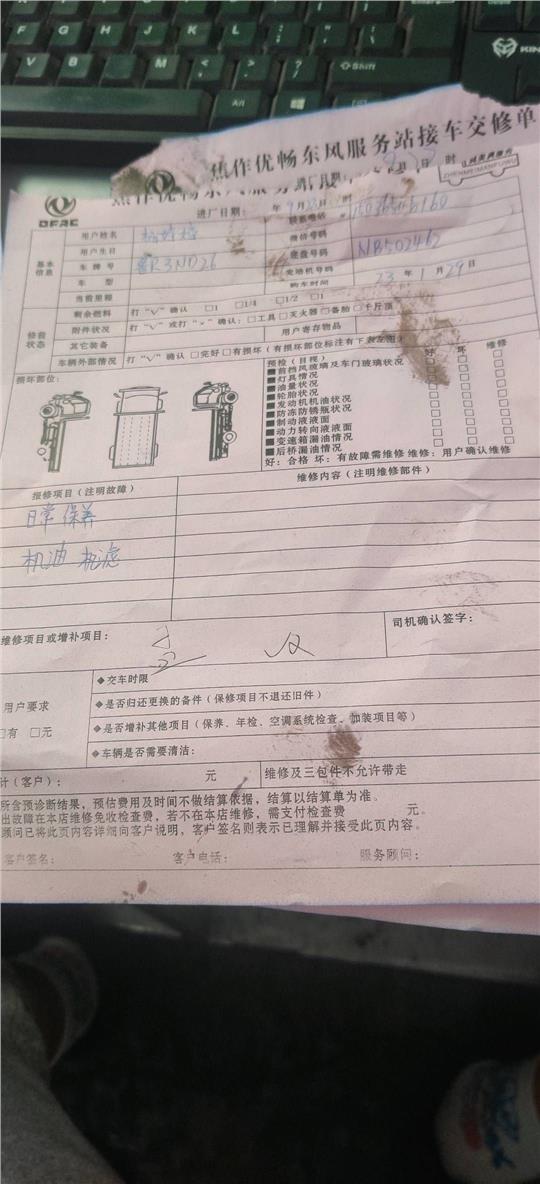 焦作优畅东风服务站接车交修单
DFAC
ZHENMEIWANFUWU
进厂日期: 年 9月 23日 时
基本信息
用户姓名
联系电话
用户生日
微信号码
车牌号 3ND26
底盘号码 NB502462
车型
发动机号码
购车时间 23年1月29日
修前状态
当前里程
剩余燃料 打"√"确认 □1 □1/4 □1/2 □1
附件状况 打"√"或打"×"确认: □工具 □灭火器 □备胎 □千斤顶
其它装备
用户寄存物品
车辆外部情况 打"√"确认 □完好 □有损坏(有损坏部位标注有下表左图)
损坏部位:
预检(目视) 好 坏 维修
■前挡风玻璃及车门玻璃状况 □ □ □
■灯具情况 □ □ □
■油量状况 □ □ □
■轮胎状况 □ □ □
■发动机机油状况 □ □ □
■防冻防锈瓶状况 □ □ □
■制动液液面 □ □ □
■动力转向液液面 □ □ □
■变速箱漏油情况 □ □ □
■后桥漏油情况 □ □ □
好: 合格 坏: 有故障需维修 维修: 用户确认维修
报修项目(注明故障)
维修内容(注明维修部件)
日常保养
机油 机滤
维修项目或增补项目:
司机确认签字:
用户要求
□有 □无
◆交车时限
◆是否归还更换的备件(保修项目不退还旧件)
◆是否增补其他项目(保养、年检、空调系统检查、加装项目等)
◆车辆是否需要清洁:
计(客户): 元
维修及三包件不允许带走
所含预诊断结果,预估费用及时间不做结算依据,结算以结算单为准。
出故障在本店维修免收检查费,若不在本店维修,需支付检查费 元。
顾问已将此页内容详细向客户说明,客户签名则表示已理解并接受此页内容。
客户签名: 客户电话: 服务顾问: